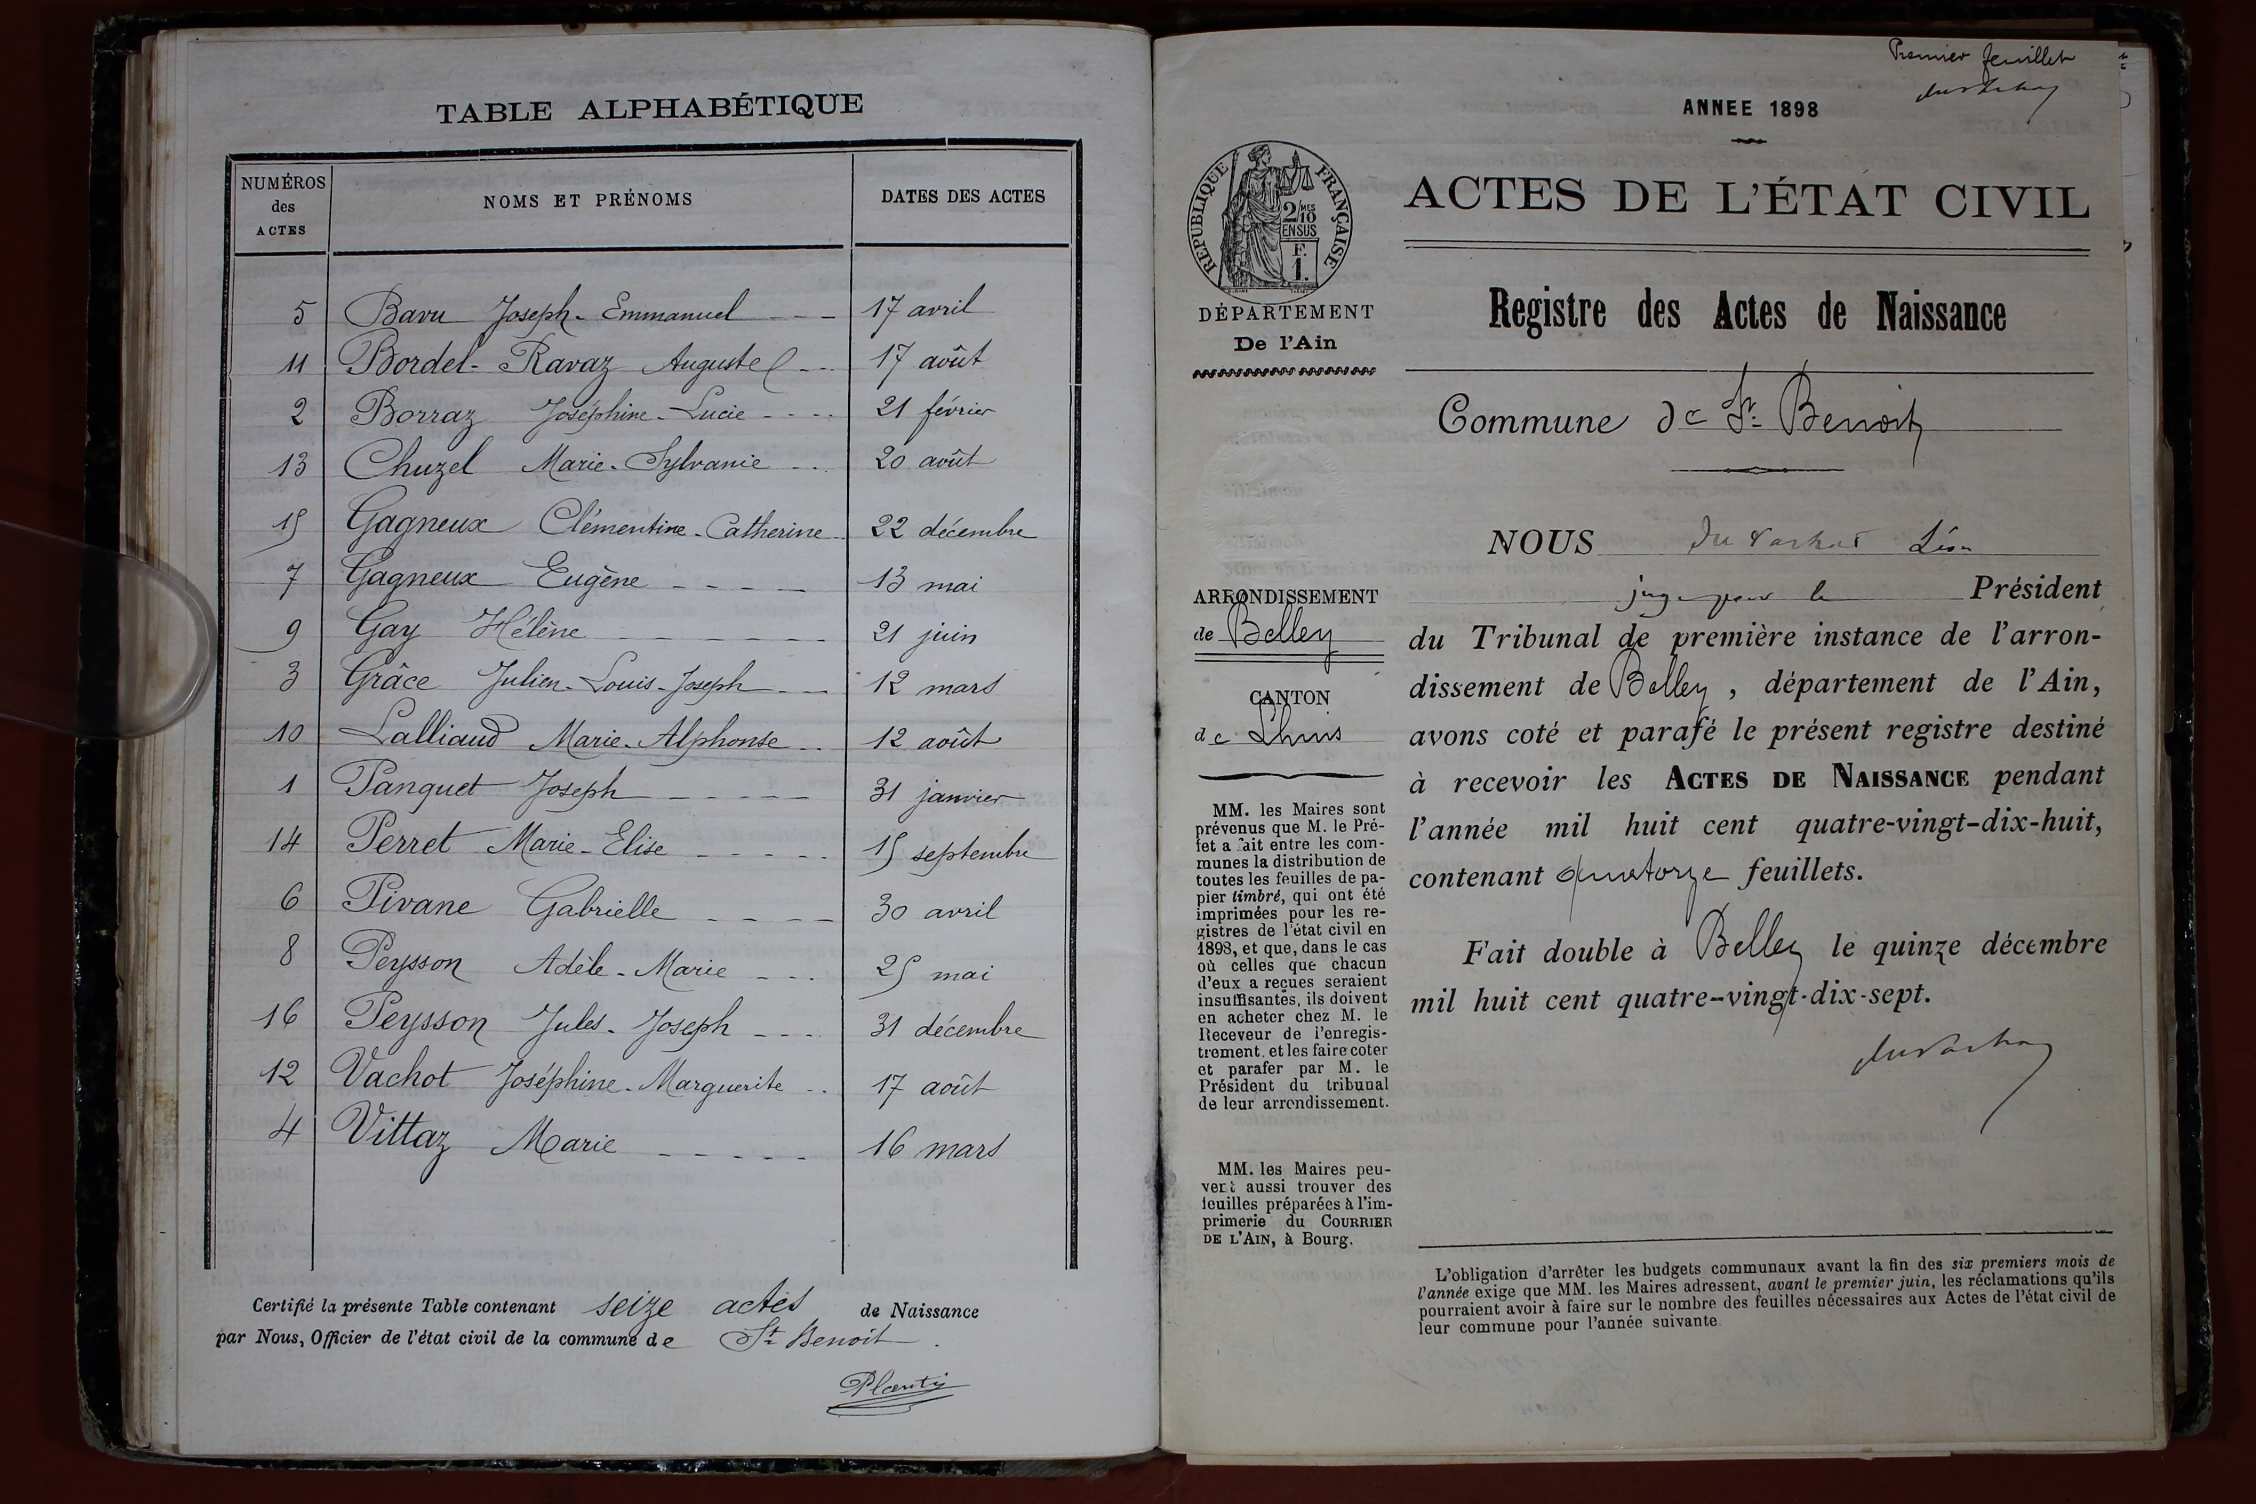 TABLE ALPHABÉTIQUE
NUMÉROS des ACTES NOMS ET PRÉNOMS DATES DES ACTES
5 Bavu Joseph-Emmanuel 17 avril
11 Bordel-Ravaz Auguste 17 août
2 Borraz Joséphine-Lucie 21 février
13 Chuzel Marie-Sylvanie 20 août
15 Gagneux Clémentine-Catherine 22 décembre
7 Gagneux Eugène 13 mai
9 Gay Hélène 21 juin
3 Grâce Julien-Louis-Joseph 12 mars
10 Lalliaud Marie-Alphonse 12 août
1 Panquet Joseph 31 janvier
14 Perret Marie-Elise 15 septembre
6 Pivane Gabrielle 30 avril
8 Peysson Adèle-Marie 25 mai
16 Peysson Jules-Joseph 31 décembre
12 Vachot Joséphine-Marguerite 17 août
4 Vittaz Marie 16 mars
Certifié la présente Table contenant seize actes de Naissance
par Nous, Officier de l'état civil de la commune de St Benoit.
Premier feuillet
ANNEE 1898
RÉPUBLIQUE FRANÇAISE
2/10 MES
EN SUS
F.
1.
DÉPARTEMENT
De l'Ain
ACTES DE L'ÉTAT CIVIL
Registre des Actes de Naissance
Commune de St. Benoit
ARRONDISSEMENT
de Belley
CANTON
de Lhuis
MM. les Maires sont
prévenus que M. le Pré-
fet a fait entre les com-
munes la distribution de
toutes les feuilles de pa-
pier timbré, qui ont été
imprimées pour les re-
gistres de l'état civil en
1898, et que, dans le cas
où celles que chacun
d'eux a reçues seraient
insuffisantes, ils doivent
en acheter chez M. le
Receveur de l'enregis-
trement. et les faire coter
et parafer par M. le
Président du tribunal
de leur arrondissement.
MM. les Maires peu-
vent aussi trouver des
feuilles préparées à l'im-
primerie du COURRIER
DE L'AIN, à Bourg.
NOUS Léon
juge pour le Président
du Tribunal de première instance de l'arron-
dissement de Belley, département de l'Ain,
avons coté et parafé le présent registre destiné
à recevoir les ACTES DE NAISSANCE pendant
l'année mil huit cent quatre-vingt-dix-huit,
contenant quatorze feuillets.
Fait double à Belley le quinze décembre
mil huit cent quatre-vingt-dix-sept.
L'obligation d'arrêter les budgets communaux avant la fin des six premiers mois de
l'année exige que MM. les Maires adressent, avant le premier juin, les réclamations qu'ils
pourraient avoir à faire sur le nombre des feuilles nécessaires aux Actes de l'état civil de
leur commune pour l'année suivante.